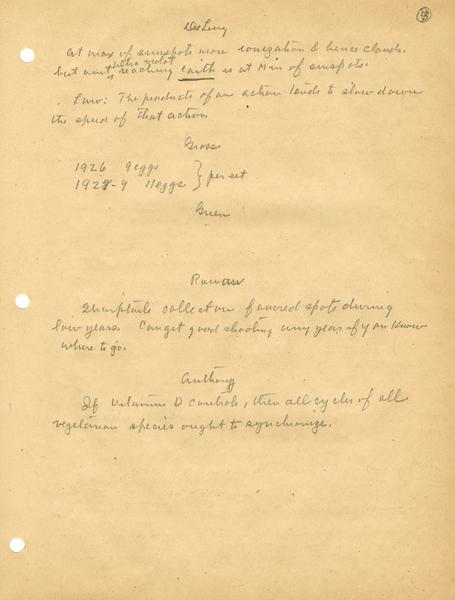 De Lury
At max of sunspots more ionization & hence clouds.
but amt ultra violet reaching earth is at min of sunspots.
Law: The products of an action tends to slow down
the speed of that action.
Gross
1926 9 eggs
1928-9 11 eggs } per set
Green
Rowan
Sharptails collect on favored spots during
low years. Can get good shooting any year if you know
where to go.
Anthony
If Vitamin D controls, then all cycles of all
vegetarian species ought to synchronize.